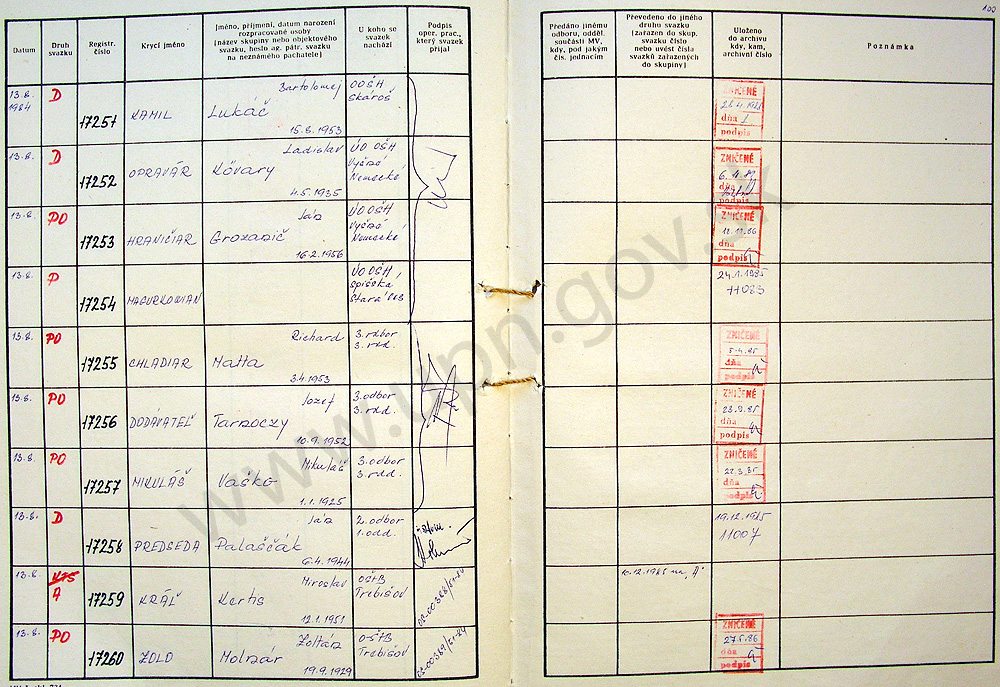 100
Datum
Druh svazku
Registr. číslo
Krycí jméno
Jméno, příjmení, datum narození
rozpracované osoby
(název skupiny nebo objektového
svazku, heslo ag. pátr. svazku
na neznámého pachatele)
U koho se
svazek
nachází
Podpis
oper. prac.,
který svazek
přijal
Předáno jinému
odboru, odděl.
součásti MV,
kdy, pod jakým
čís. jednacím
Převedeno do jiného
druhu svazku
(zařazen do skup.
svazku číslo
nebo uvést čísla
svazků zařazených
do skupiny)
Uloženo
do archivu
kdy, kam,
archivní číslo
Poznámka
13.8. 1984 D 17251 KAMIL Bartolomej Lukáč 15.8.1953 OOŠH Skároš
ZNIČENÉ
dňa
podpis
13.8. D 17252 OPRAVÁR Ladislav Kőváry 4.5.1935 ÚO OŠH Vyšné Nemecké
ZNIČENÉ
dňa
podpis
13.8. PO 17253 HRANIČIAR Ján Grozanič 16.2.1956 ÚO OŠH Vyšné Nemecké
ZNIČENÉ
dňa
podpis
13.8. P 17254 MAGURKOMAN ÚO OŠH, Spišská Stará Ves
24.1.1985
11083
13.8. PO 17255 CHLADIAR Richard Matta 3.4.1953 3. odbor 3. odd.
ZNIČENÉ
dňa
podpis
13.8. PO 17256 DODÁVATEĽ Jozef Tarnoczy 10.9.1952 3. odbor 3. odd.
ZNIČENÉ
dňa
podpis
13.8. PO 17257 MIKULÁŠ Mikuláš Vaško 1.1.1925 3. odbor 3. odd.
ZNIČENÉ
dňa
podpis
13.8. D 17258 PREDSEDA Ján Palaščák 6.4.1944 2. odbor 1. odd.
19.12.1985
11007
13.8. A 17259 KRÁĽ Miroslav Kertis 12.1.1951 OŠTB Trebišov
10.12.1985 na "A"
13.8. PO 17260 ZOLO Zoltán Molnár 19.9.1929 OŠTB Trebišov
ZNIČENÉ
27.5.86
dňa
podpis
www.upn.gov.sk